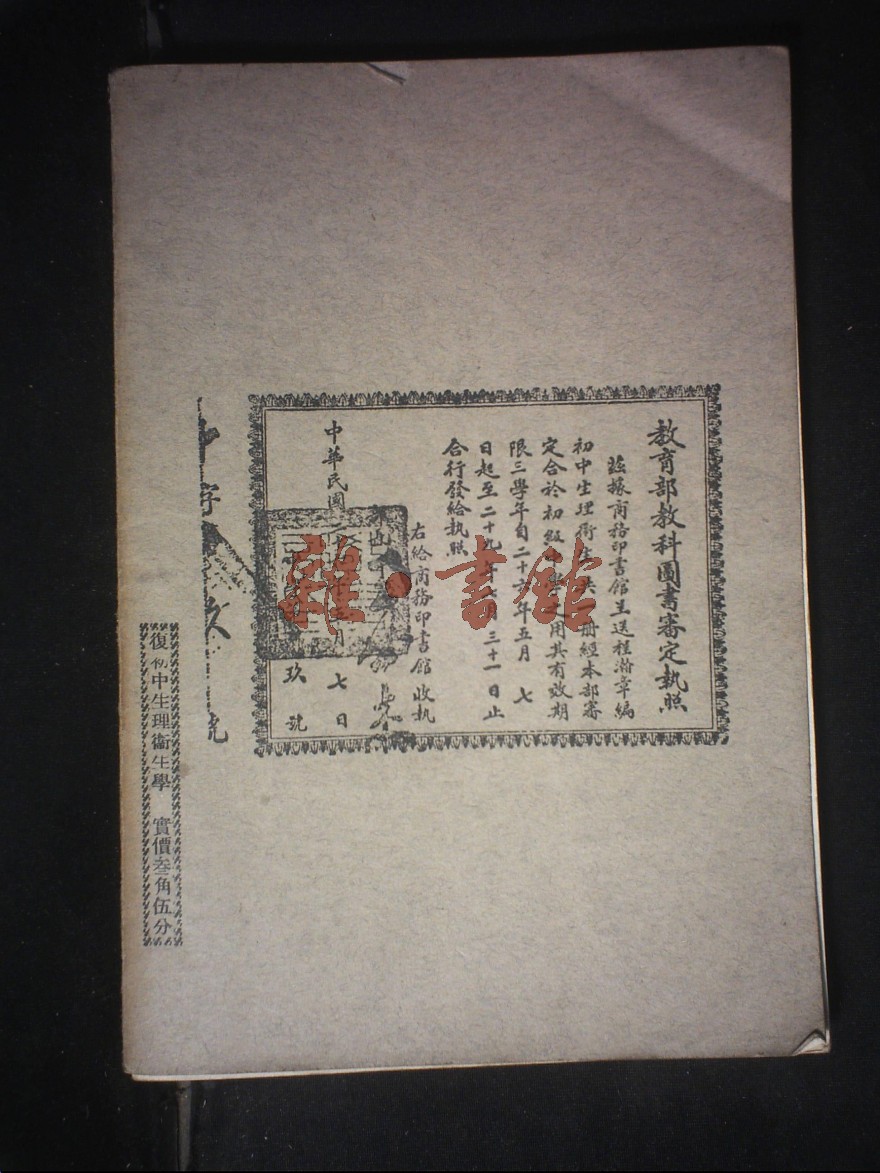 教育部教科圖書審定執照
茲據商務印書館呈送程瀚章編
初中生理衛生學一册經本部審
定合於初級中學之用其有效期
限三學年自二十六年五月七
日起至二十九年七月三十一日止
合行發給執照
右給商務印書館收執
中華民國 月七日
玖號
字 號
復初中生理衞生學 實價叁角伍分
雜·書館